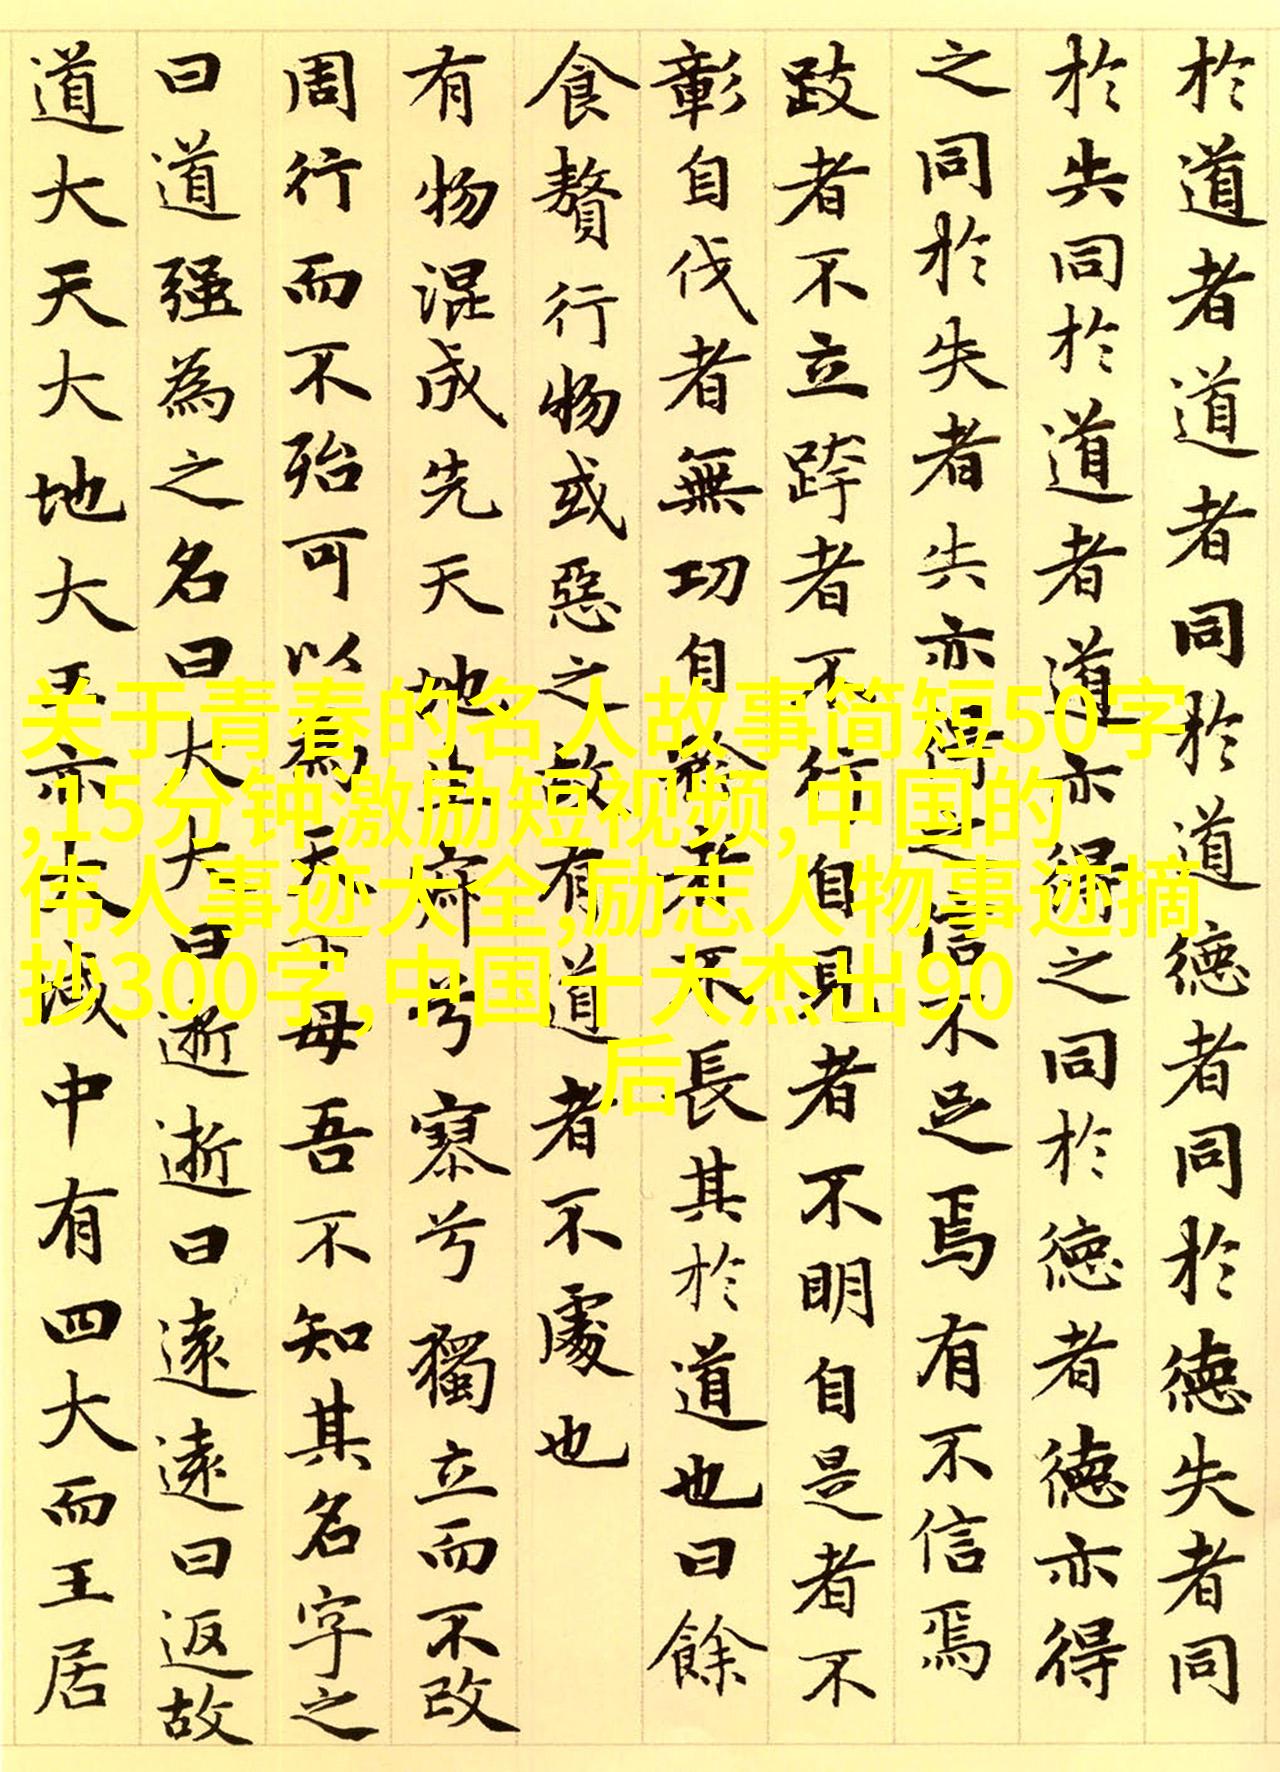 於道者道者同於道德者同於德失者同
於失同於道者道亦得之同於德者德亦得
之同於失者失亦得之信不足焉有不信焉
跂者不立跨者不行自見者不明自是者不
彰自伐者無功自矜者不長其於道也曰餘
食贅行物或惡之故有道者不處也
有物混成先天地生寂兮寥兮獨立而不改
周行而不殆可以為天下母吾不知其名字之
曰道强為之名曰大大曰逝逝曰遠遠曰返故
道大天大地大王亦大域中有四大而王居
关于青春的名人故事简短50字
,15分钟激励短视频,中国的
伟人事迹大全,励志人物事迹摘
抄300字,中国十大杰出90
后